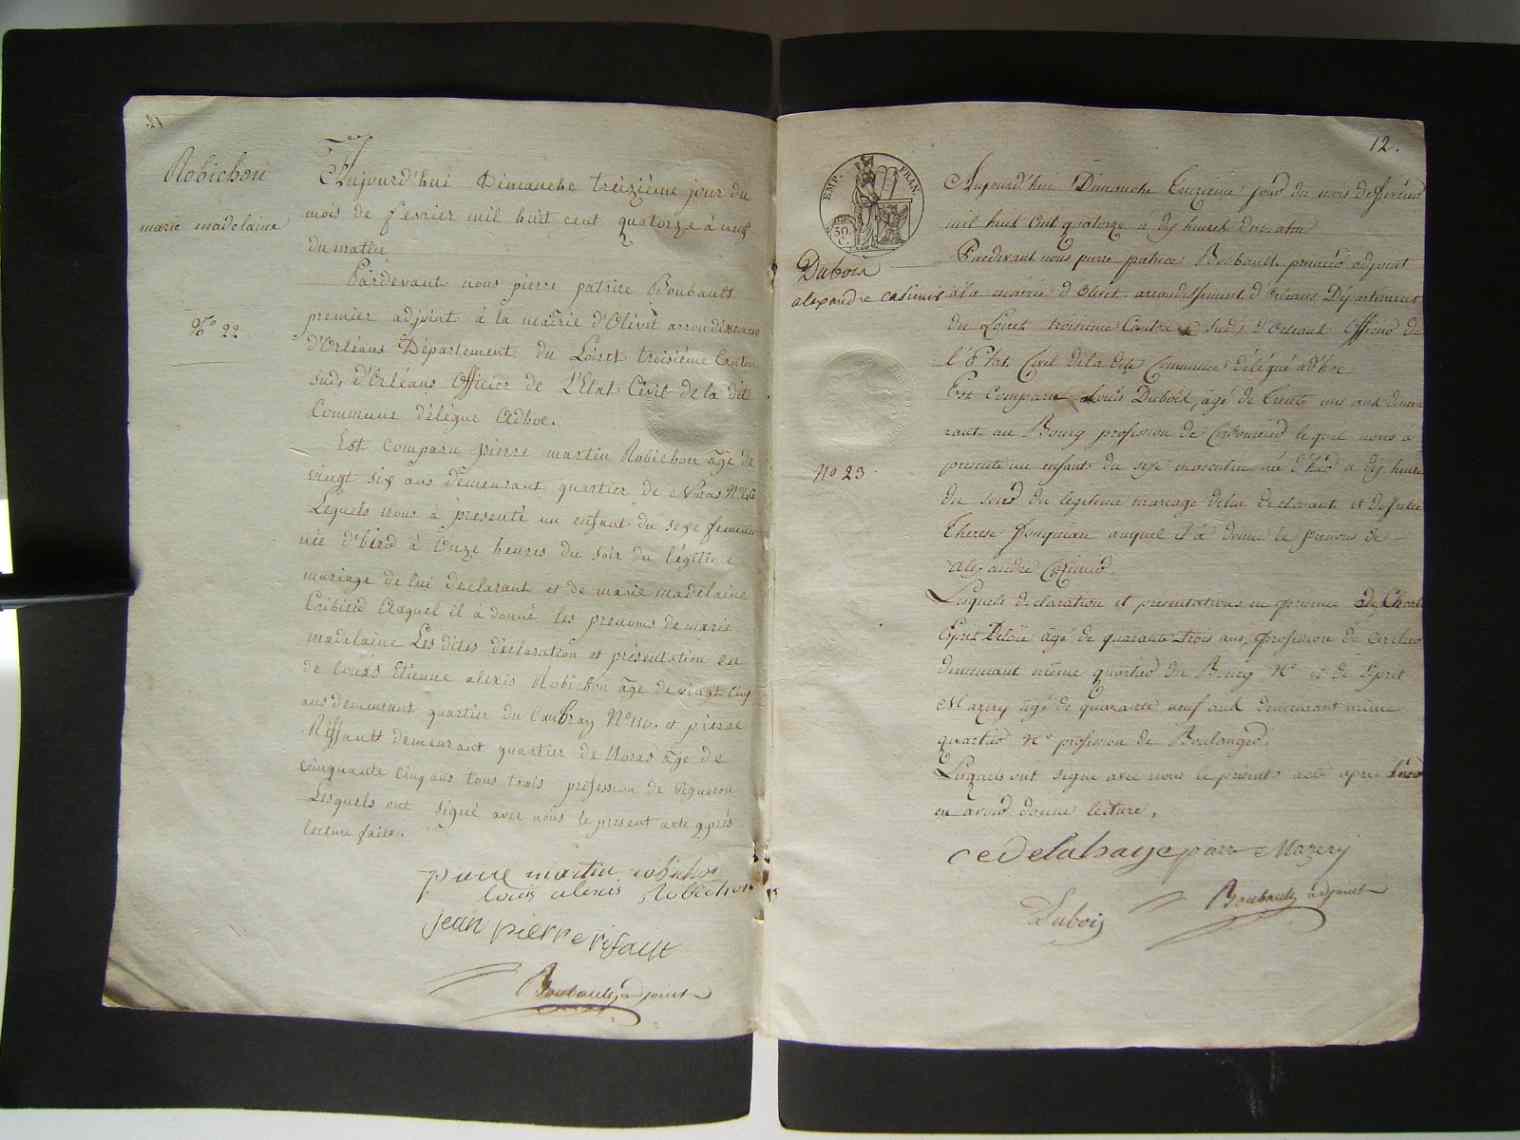 Robichon
marie madelaine
N° 22
Aujourd'hui Dimanche treizième jour du
mois de fevrier mil huit cent quatorze à neuf
du matin
Pardevant nous pierre patrice Boubault
premier adjoint à la mairie d'Olivet arrondissement
d'Orléans Département du Loiret troisième Canton
sud, d'Orléans Officier de L'Etat Civil de la dite
Commune délégué Adhoc.
Est comparu pierre martin Robichon âgé de
vingt six ans demeurant quartier de Noras
Lequels nous à présenté un enfant du sexe feminin
née d'hier à Onze heures du soir du légitime
mariage de lui declarant et de marie madelaine
Laquel il à donné les prenoms de marie
madelaine Les dites déclaration et présentation en
de louis Etienne alexis Robichon âgé de vingt cinq
ans demeurant quartier du Caubray N° 110. et pierre
Riffault demeurant quartier de Noras âgé de
cinquante cinq ans tous trois profession de vigneron
Lesquels ont signé avec nous le present acte après
lecture faite.
pierre martin robichon
louis alexis Robichon
jean pierre rifault
Boubault adjoint
12.
EMP. FRAN.
50
Dubois
alexandre casimir
N° 23
Aujourd'hui Dimanche Treizieme jour du mois de fevrier
mil huit Cent quatorze à dix heures du matin
Pardevant nous pierre patrice Boubault premier adjoint
à la mairie d'Olivet arrondissement d'Orleans Département
du Loiret troisieme Canton Sud, d'Orleans Officier de
l'Etat Civil de la dite Commune délégué ad'hoc
Est Comparu Louis Dubois, âgé de Trente un ans demeu
rant au Bourg profession de Cordonnier lequel nous a
presenté un enfant du sexe masculin né d'hier à dix heures
du soir du legitime mariage de lui declarant et de
Therese auquel il a donné le prenoms de
alexandre Casimir
Lesquels declaration et presentation en presence de Charles
Esprit Delaie âgé de quarante trois ans, profession de
demeurant même quartier du Bourg N° et de Esprit
Mazery âgé de quarante neuf ans demeurant même
quartier N° profession de Boulanger.
Lesquels ont signé avec nous le présent acte après leur
en avoir donné lecture.
ce Delahaye pierre Mazery
Dubois
Boubault adjoint